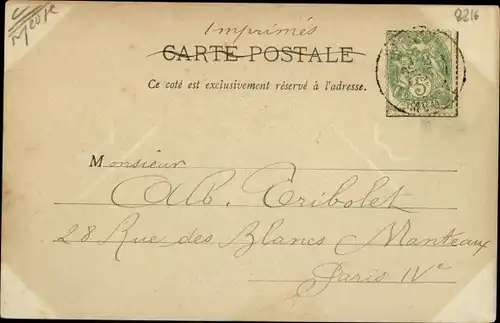 8216
Imprimés
CARTE POSTALE
Ce coté est exclusivement réservé à l'adresse.
5
Monsieur
Alb. Tribolet
28 Rue des Blancs Manteaux
Paris IVe